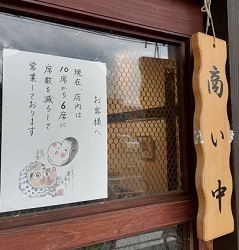 お客様へ
現在、店内は
10席から6席に
席数を減らして
営業しております
商い中